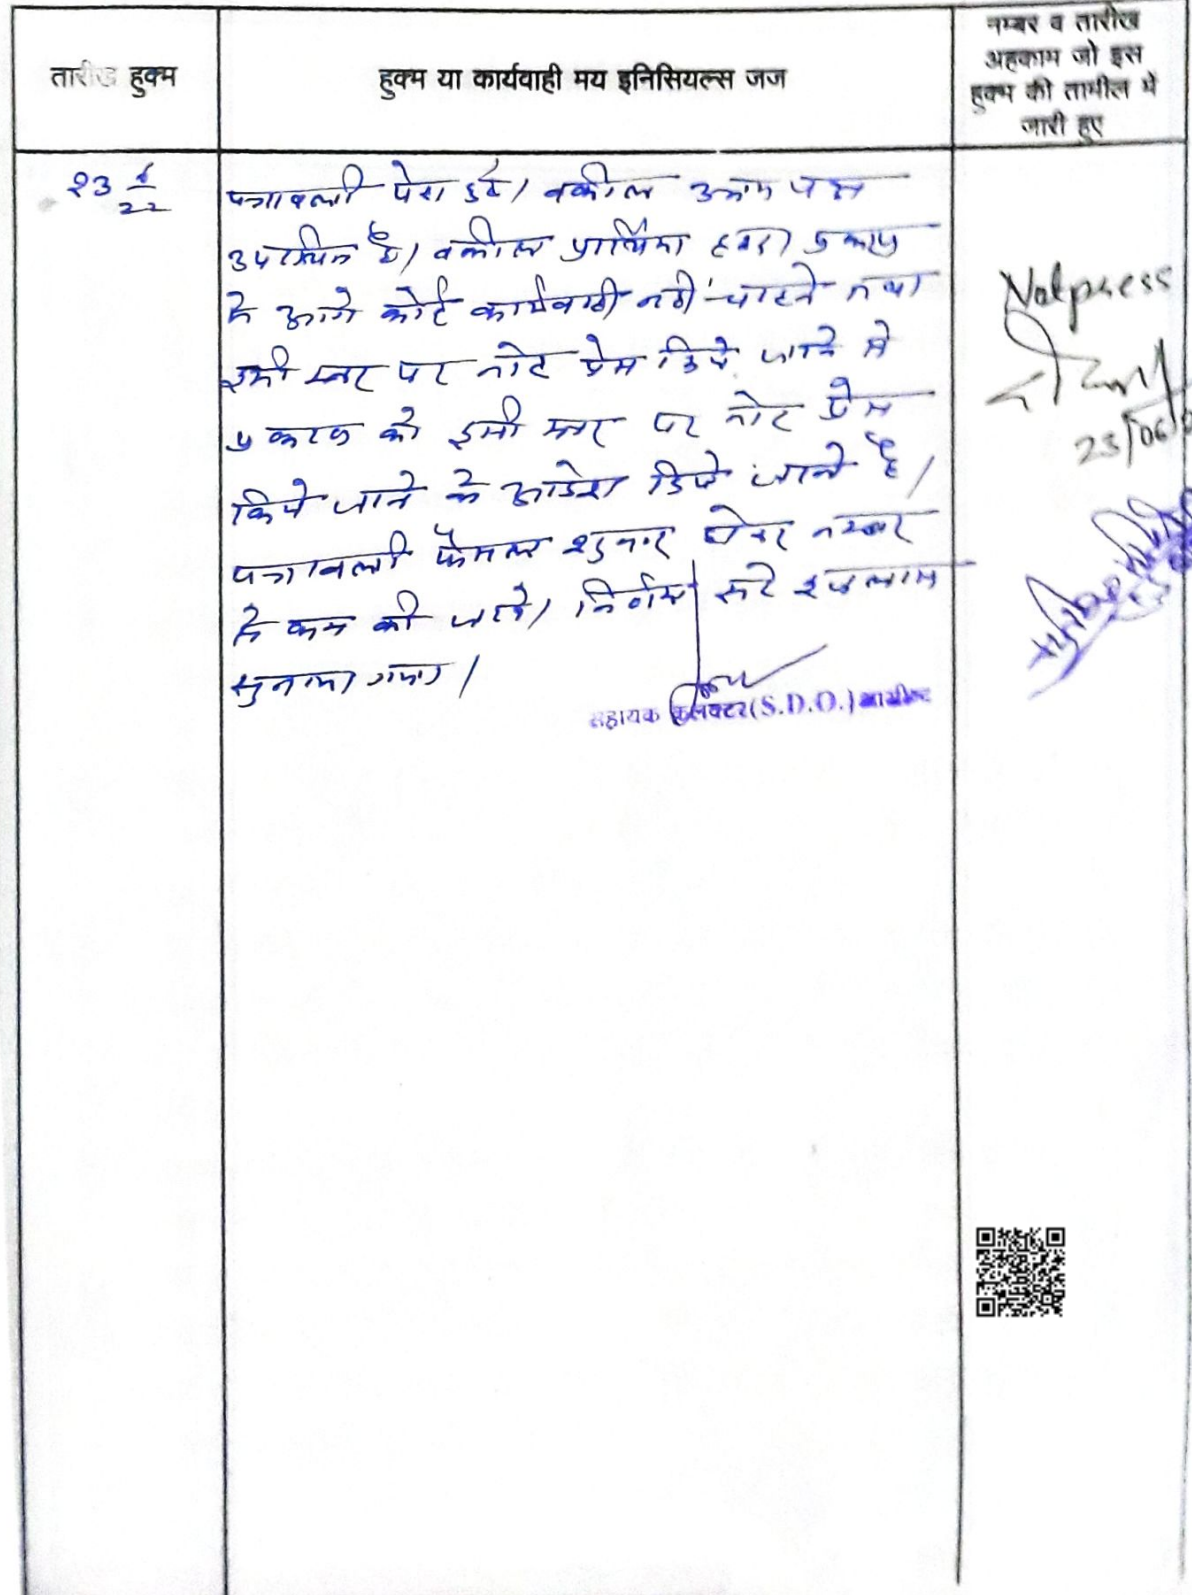 तारीख हुक्म
हुक्म या कार्यवाही मय इनिसियल्स जज
नम्बर व तारीख
अहकाम जो इस
हुक्म की तामील में
जारी हुए
23 6/22
पत्रावली पेश हुई। वकील उभय पक्ष
उपस्थित है। वकील प्रार्थिया द्वारा प्रकरण
में आगे कोई कार्यवाही नहीं चाहने तथा
इसी स्तर पर नोट प्रेस किये जाने से
प्रकरण को इसी स्तर पर नोट प्रेस
किये जाने के आदेश दिये जाते है।
पत्रावली फैसल शुमार होकर नम्बर
से कम की जावे। निर्णय सरे इजलास
सुनाया गया।
सहायक कलक्टर (S.D.O.)
Notpress
23/06/